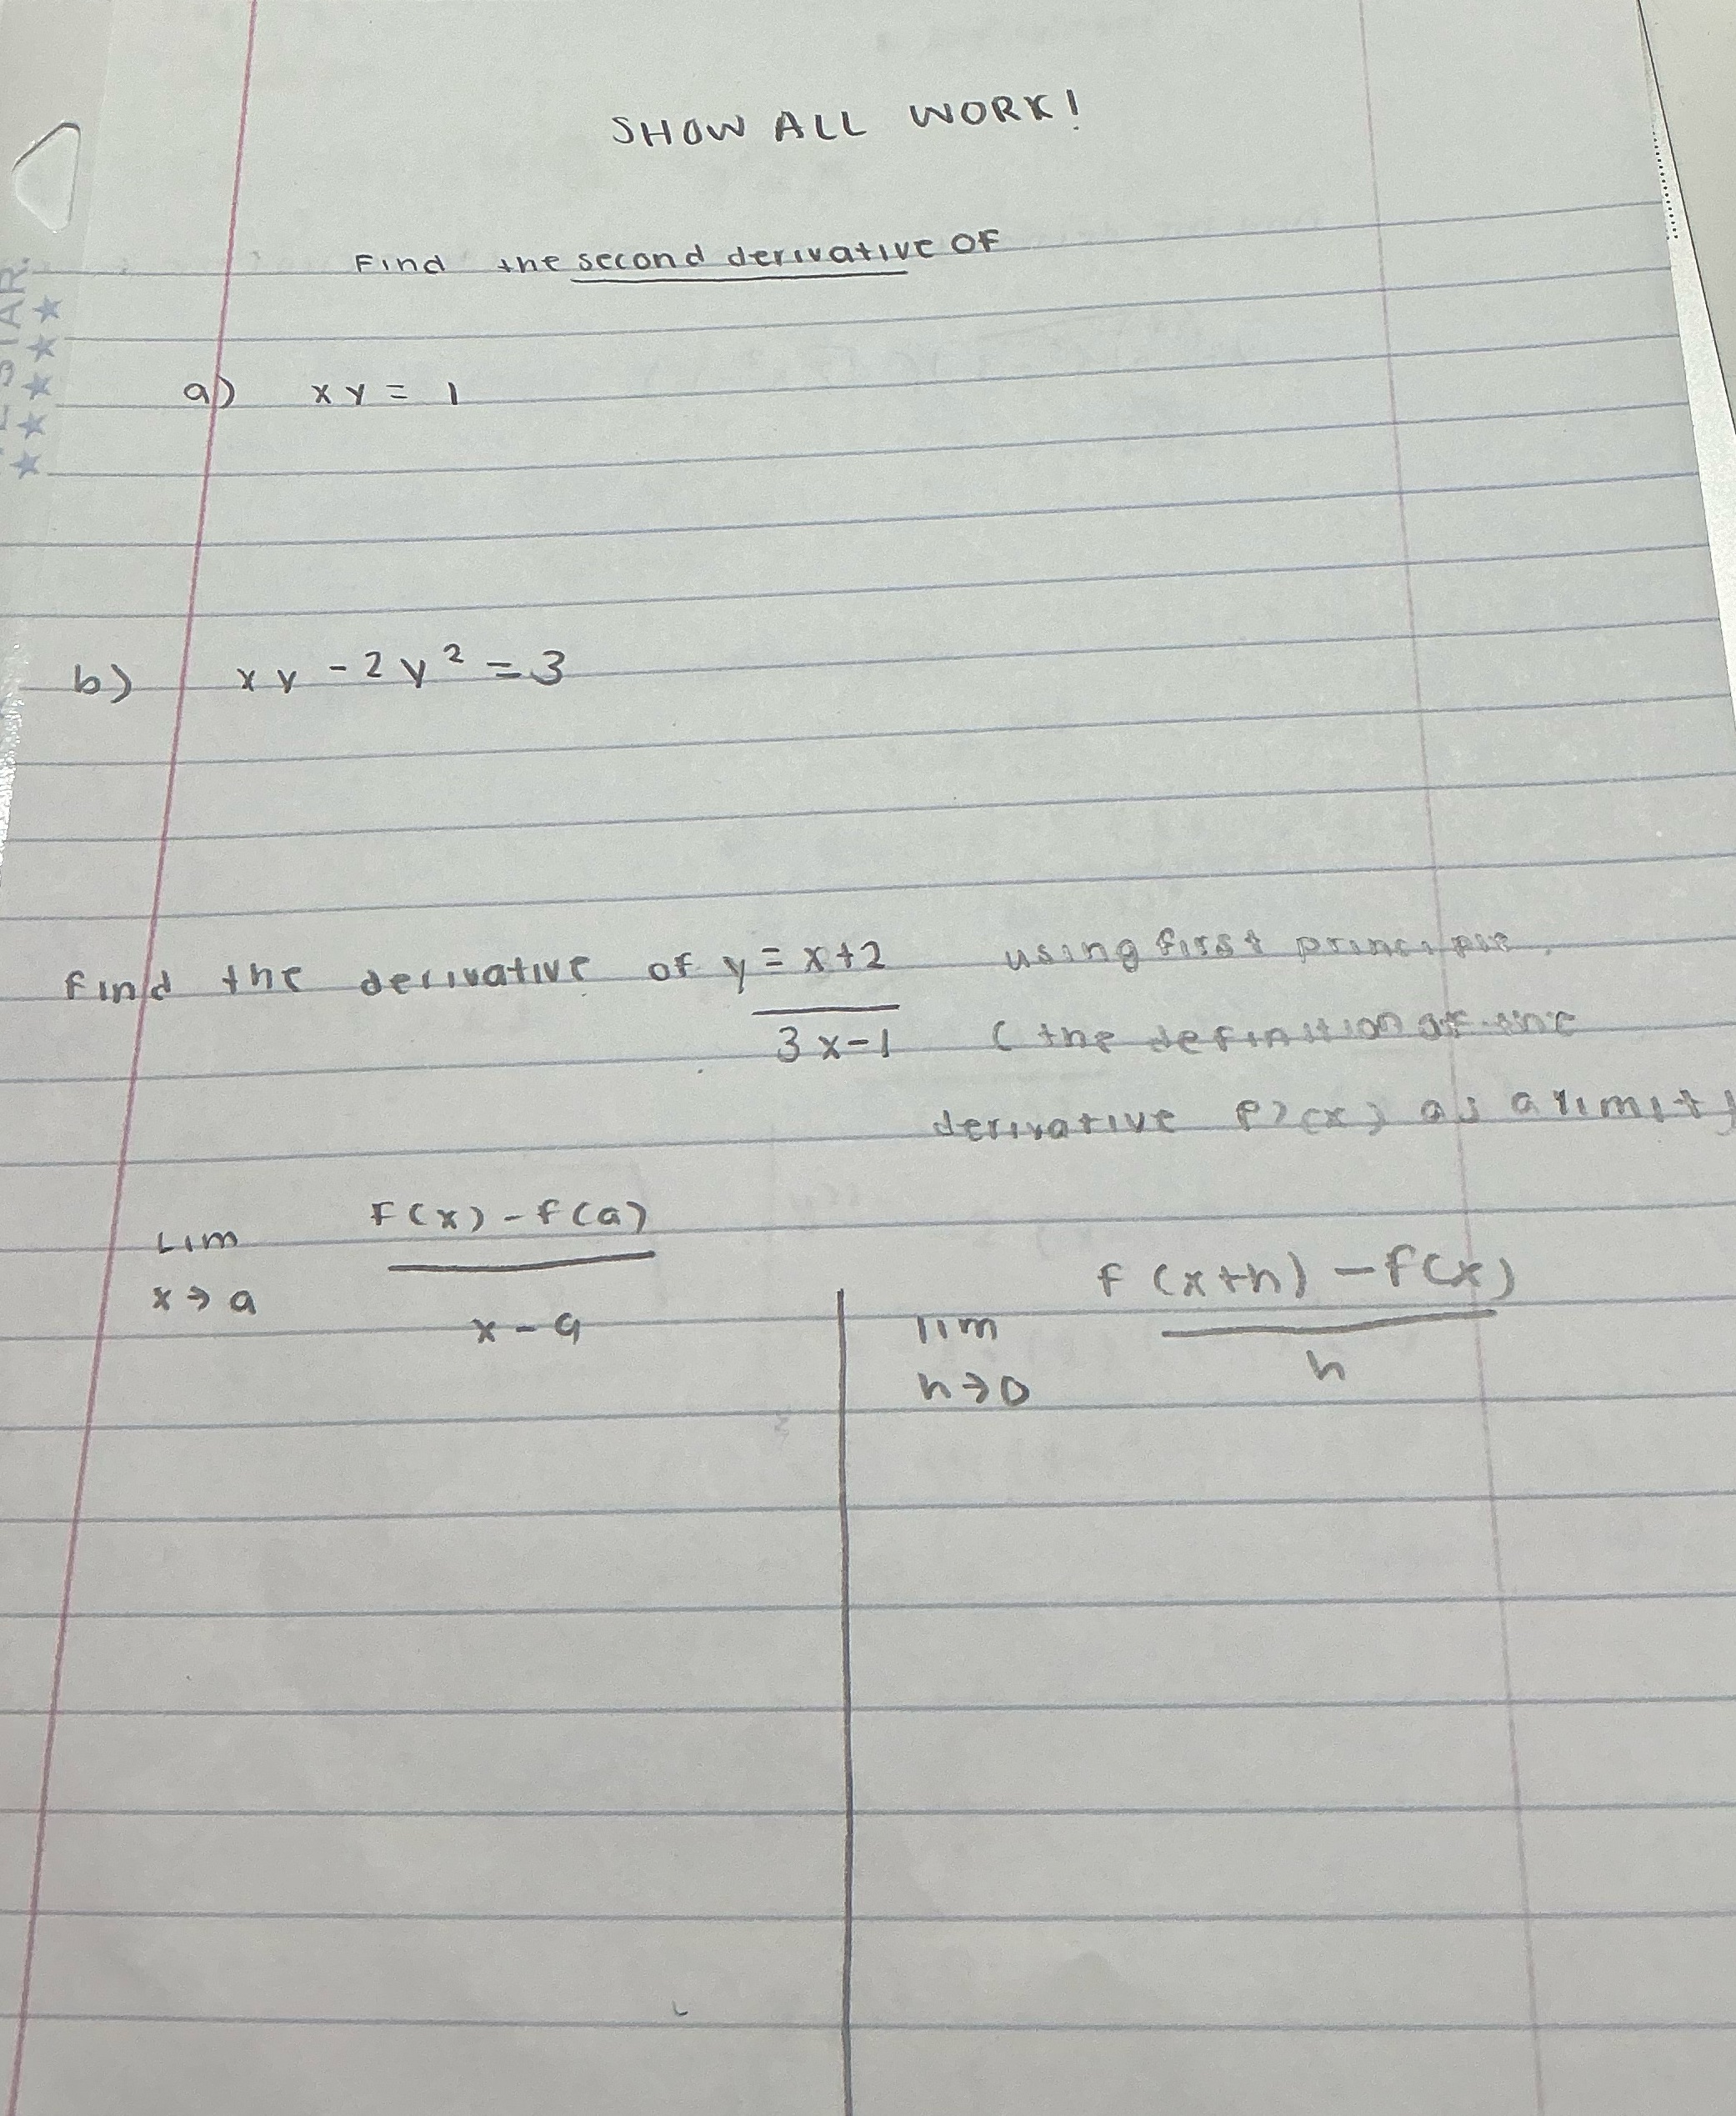 SHOW ALL WORK!
STAR.
Find the second derivative OF
a) xy = 1
b) xy - 2y² = 3
find the derivative of y = x+2 using first principle.
3x-1 (the definition of the
derivative f'(x) as a limit)
F(x) - f(a)
Lim
x→a
x-a
f(x+h) - f(x)
lim
h→0
h